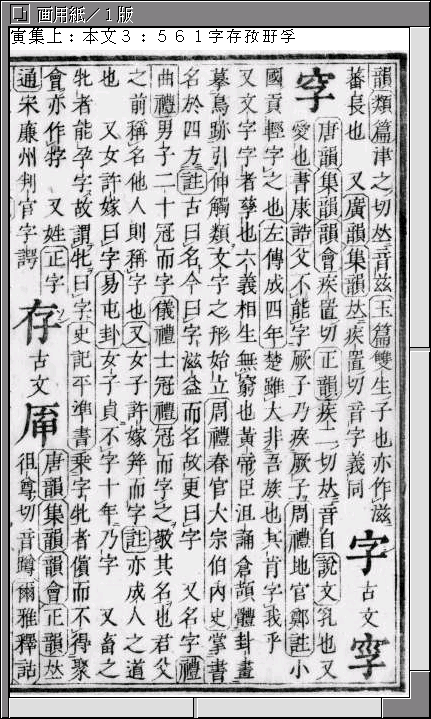 画用紙／１版
寅集上：本文３：５６１字存孜
韻類篇津之切𠀤音兹玉篇雙生子也亦作滋
蕃長也　又廣韻集韻𠀤疾置切音字義同
字 古文
唐韻集韻韻會疾置切正韻疾二切𠀤音自說文乳也又
愛也書康誥父不能字厥子乃疾厥子周禮地官鄭註小
國貢輕字之也左傳成四年楚雖大非吾族也其肯字我乎
又文字字者孳也六義相生無窮也黃帝臣沮誦倉頡體卦畫
摹鳥跡引伸觸類文字之形始立周禮春官大宗伯內史掌書
名於四方註古曰名今曰字滋益而名故更曰字　又名字禮
曲禮男子二十冠而字儀禮士冠禮冠而字之敬其名也君父
之前稱名他人則稱字也又女子許嫁笄而字註亦成人之道
也　又女許嫁曰字易屯卦女子貞不字十年乃字　又畜之
牝者能孕字故謂牝曰字史記平準書乘字牝者儐而不得聚
會亦作牸　又姓正字
通宋廉州判官字諤
存 古文
唐韻集韻韻會正韻𠀤
徂尊切音蹲爾雅釋詁